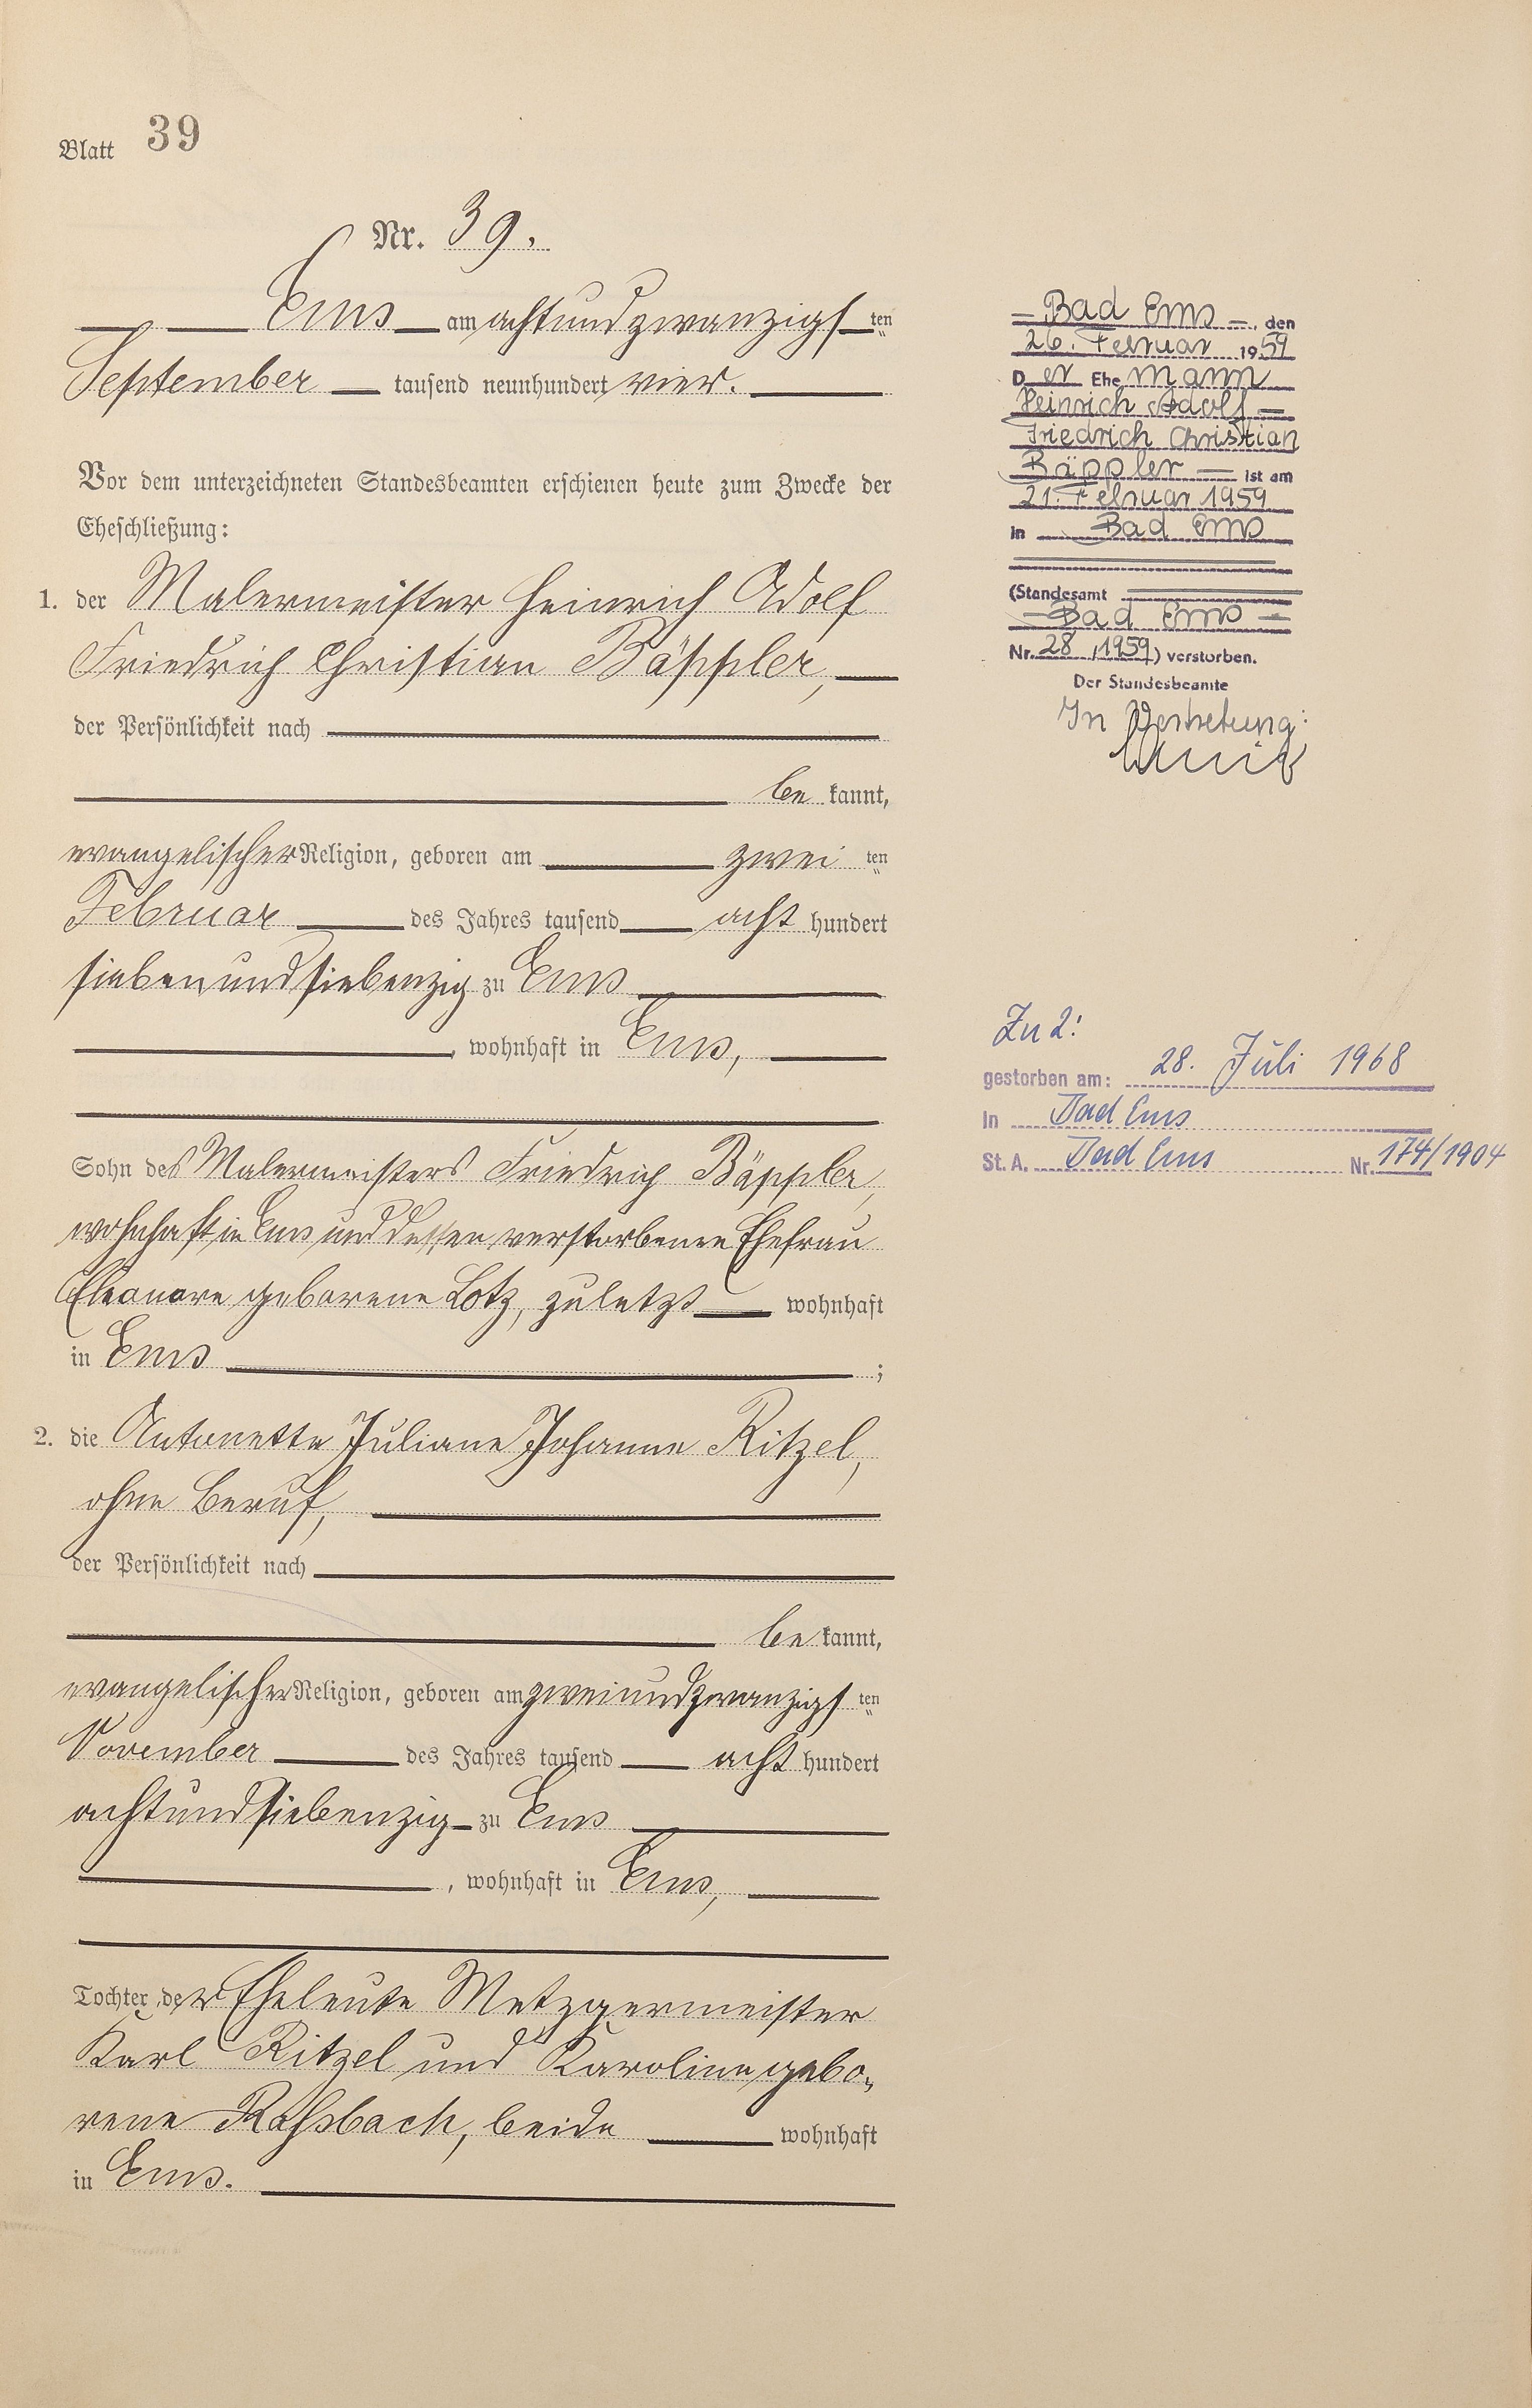 Blatt 39
Nr. 39.
Ems am achtundzwanzigsten
September tausend neunhundert vier.
Vor dem unterzeichneten Standesbeamten erschienen heute zum Zwecke der
Eheschließung:
1. der Malermeister Heinrich Adolf
Friedrich Christian Bäppler,
der Persönlichkeit nach
bekannt,
evangelischer Religion, geboren am zweiten
Februar des Jahres tausend acht hundert
siebenundsiebenzig zu Ems
, wohnhaft in Ems,
Sohn des Malermeisters Friedrich Bäppler,
wohnhaft in Ems und dessen verstorbenen Ehefrau
Eleonore geborene Lotz, zuletzt wohnhaft
in Ems ;
2. die Antonette Juliane Johanne Ritzel,
ohne Beruf,
der Persönlichkeit nach
bekannt,
evangelischer Religion, geboren am zweiundzwanzigsten
November des Jahres tausend acht hundert
achtundsiebenzig zu Ems
, wohnhaft in Ems,
Tochter der Eheleute Metzgermeister
Karl Ritzel und Karoline gebo„
rene Roßbach, beide wohnhaft
in Ems.
Bad Ems, den
26. Februar 1959
Der Ehemann
Heinrich Adolf
Friedrich Christian
Bäppler ist am
21. Februar 1959
in Bad Ems
(Standesamt
Bad Ems
Nr. 28/1959) verstorben.
Der Standesbeamte
In Vertretung:
Zu 2:
gestorben am: 28. Juli 1968
in Bad Ems
St. A. Bad Ems Nr. 174/1904